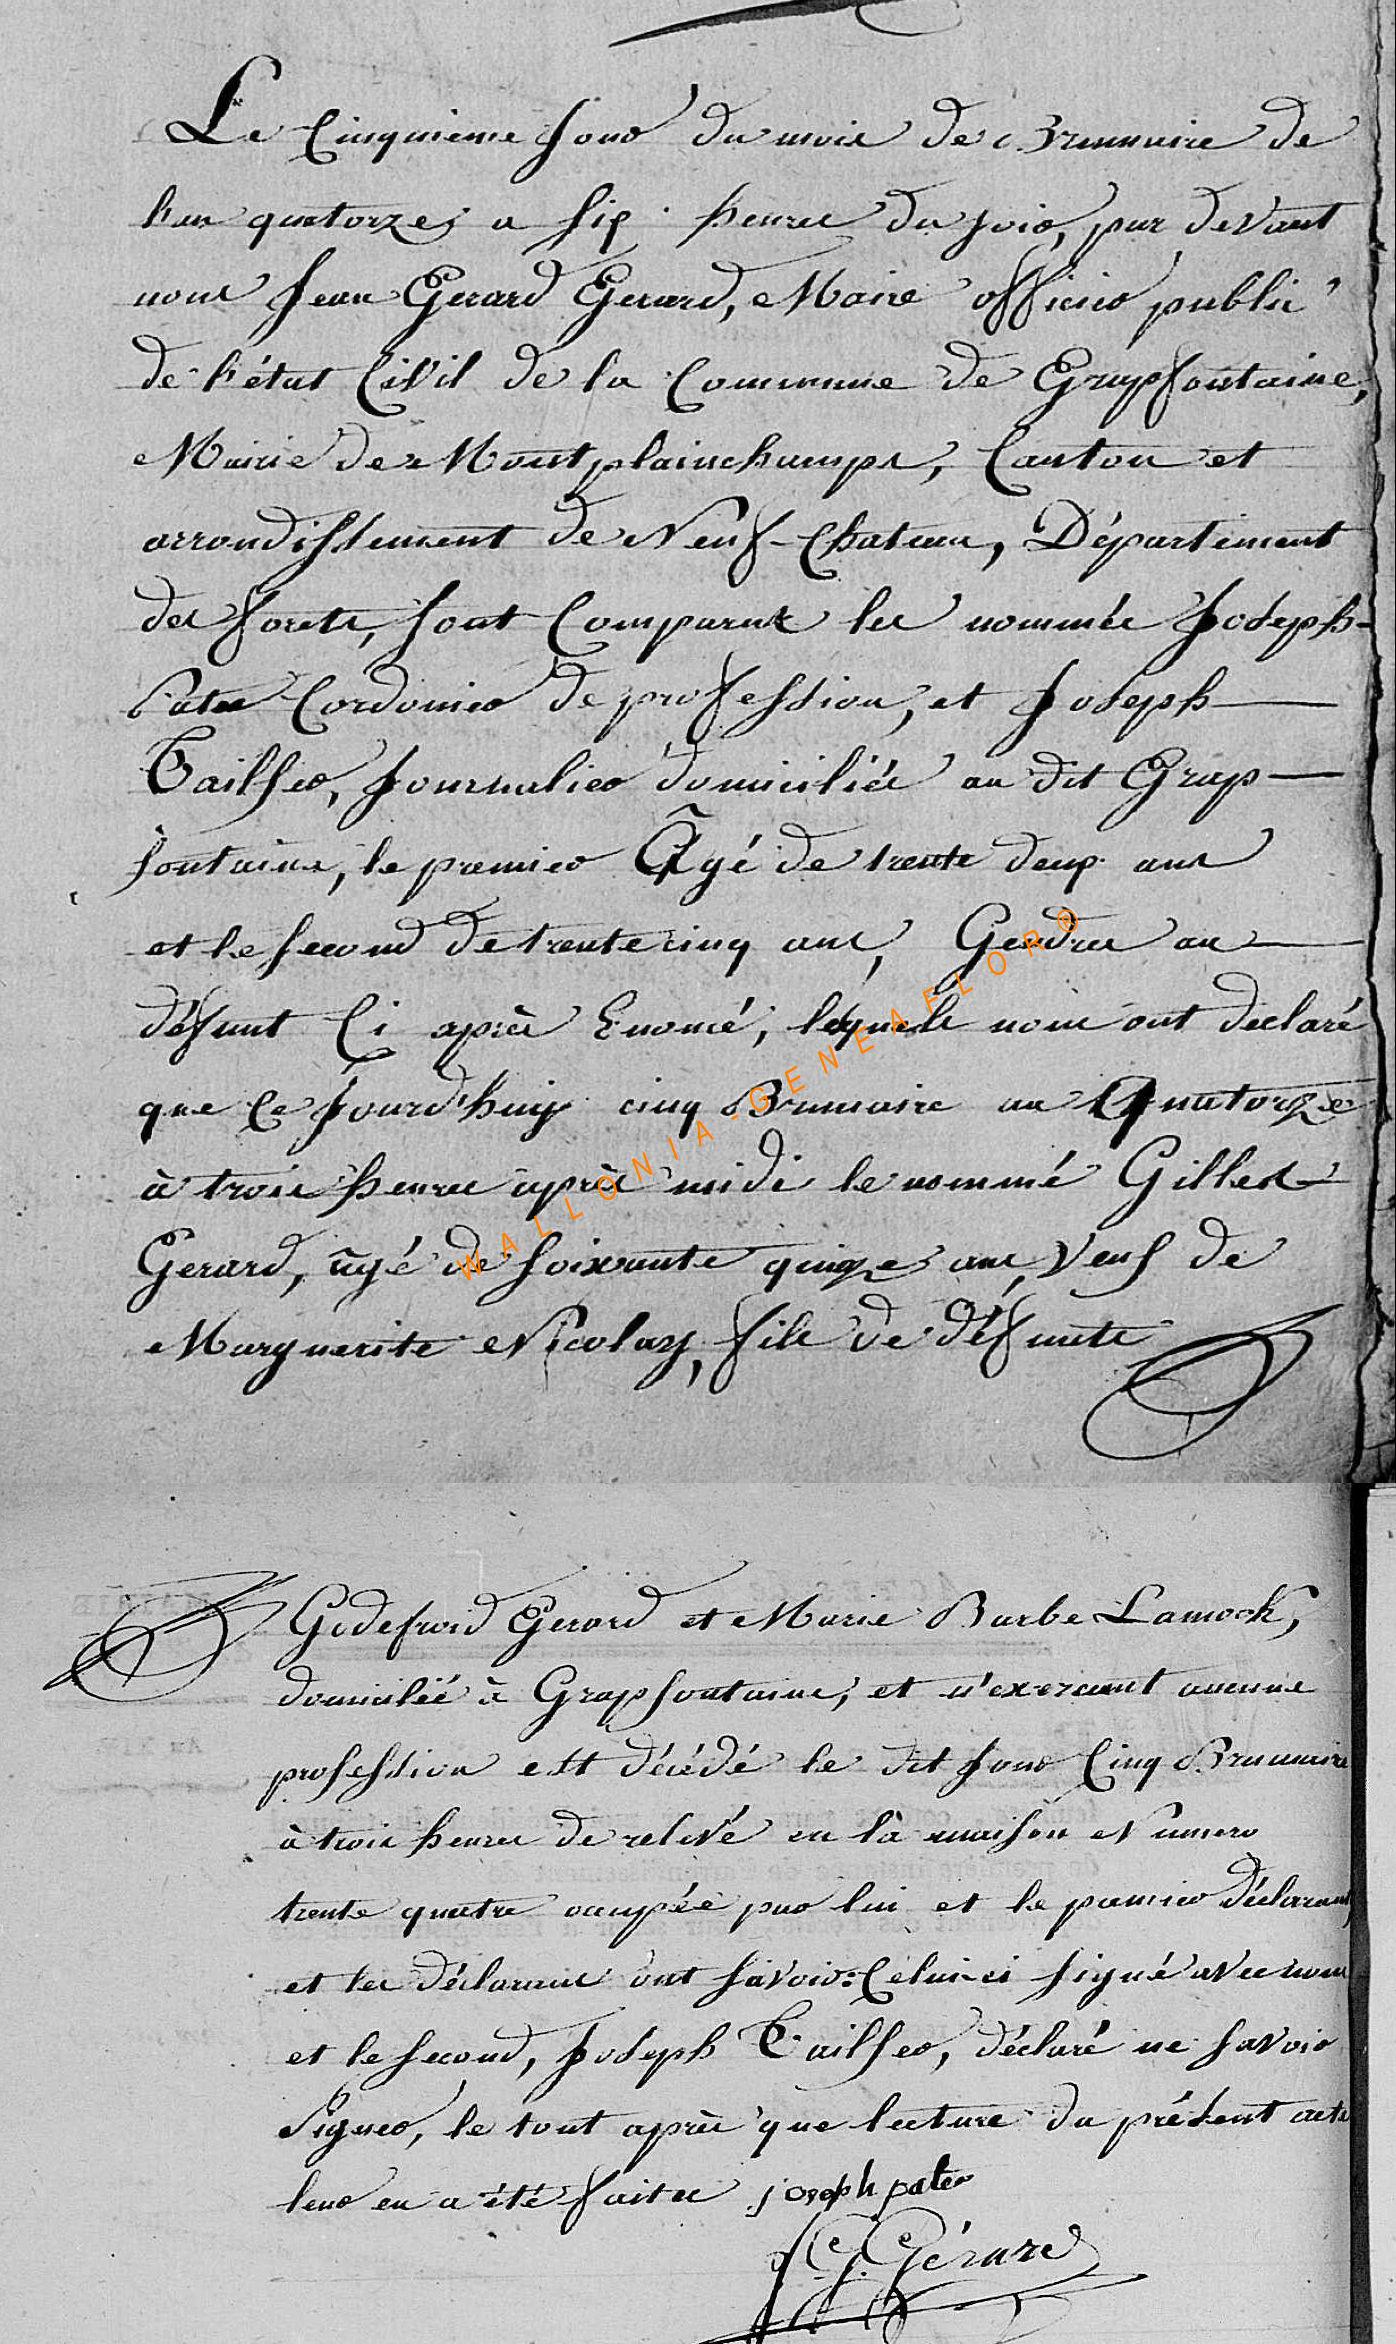 Le Cinquieme Jour du mois de Brumaire de
l'an quatorze, a six heures du soir, par devant
nous Jean Gerard Gerard, Maire officier public
de l'état Civil de la Commune de Grapfontaine,
Mairie de Montplainchamps, Canton et
arrondissement de Neuf-Chateau, Département
des forets, sont Comparus les nommés Joseph
Pater Cordonier de profession, et Joseph
Tailfer, Journalier domiciliés au dit Grap-
fontaine, le premier Âgé de trente deux ans
et le second de trente cinq ans, Gendres au
défunt Ci après Enomé, lesquels nous ont declaré
que Ce Jourd'huy cinq Brumaire an Quatorze
à trois heures après midi le nommé Gilles
Gerard, âgé de soixante quinze ans, Veuf de
Marguerite Nicolay, fils de défunts
Godefroid Gerard et Marie Barbe Lamock,
domicilié à Grapfontaine, et n'exercant aucune
profession est décédé le dit Jour Cinq Brumaire
à trois heures de relevé en là maison Numero
trente quatre occupée par lui et le premier déclarant,
et les déclarans ont savoir: Celui-ci signé avec nous
et le second, Joseph Tailfer, déclaré ne savoir
Signer, le tout après que lecture du présent acte
leur en a été faites joseph pater
J G Gérard
WALLONIA-GENEAFLOR®